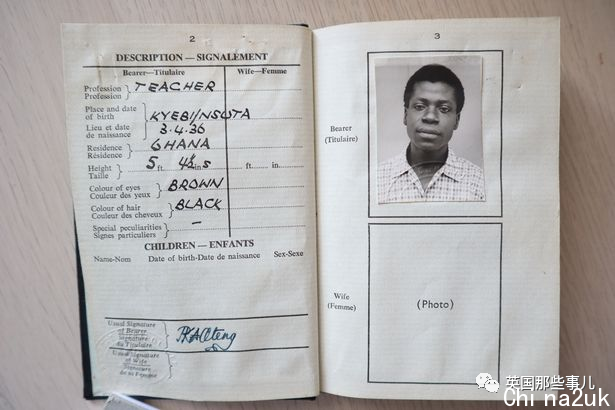 2
DESCRIPTION — SIGNALEMENT
Bearer—Titulaire Wife—Femme
Profession
Profession
TEACHER
Place and date
of birth
KYEBI/NSUTA
Lieu et date
de naissance
3.4.36
Residence
Résidence
GHANA
Height
Taille
5 ft. 4½ ins ft. in.
Colour of eyes
Couleur des yeux
BROWN
Colour of hair
Couleur des cheveux
BLACK
Special peculiarities
Signes particuliers
—
CHILDREN — ENFANTS
Name-Nom Date of birth-Date de naissance Sex-Sexe
Usual Signature
of Bearer
Signature
du Titulaire
Usual Signature
of Wife
Signature
de sa Femme
3
Bearer
(Titulaire)
Wife
(Femme)
(Photo)
英国那些事儿
Chi na2uk